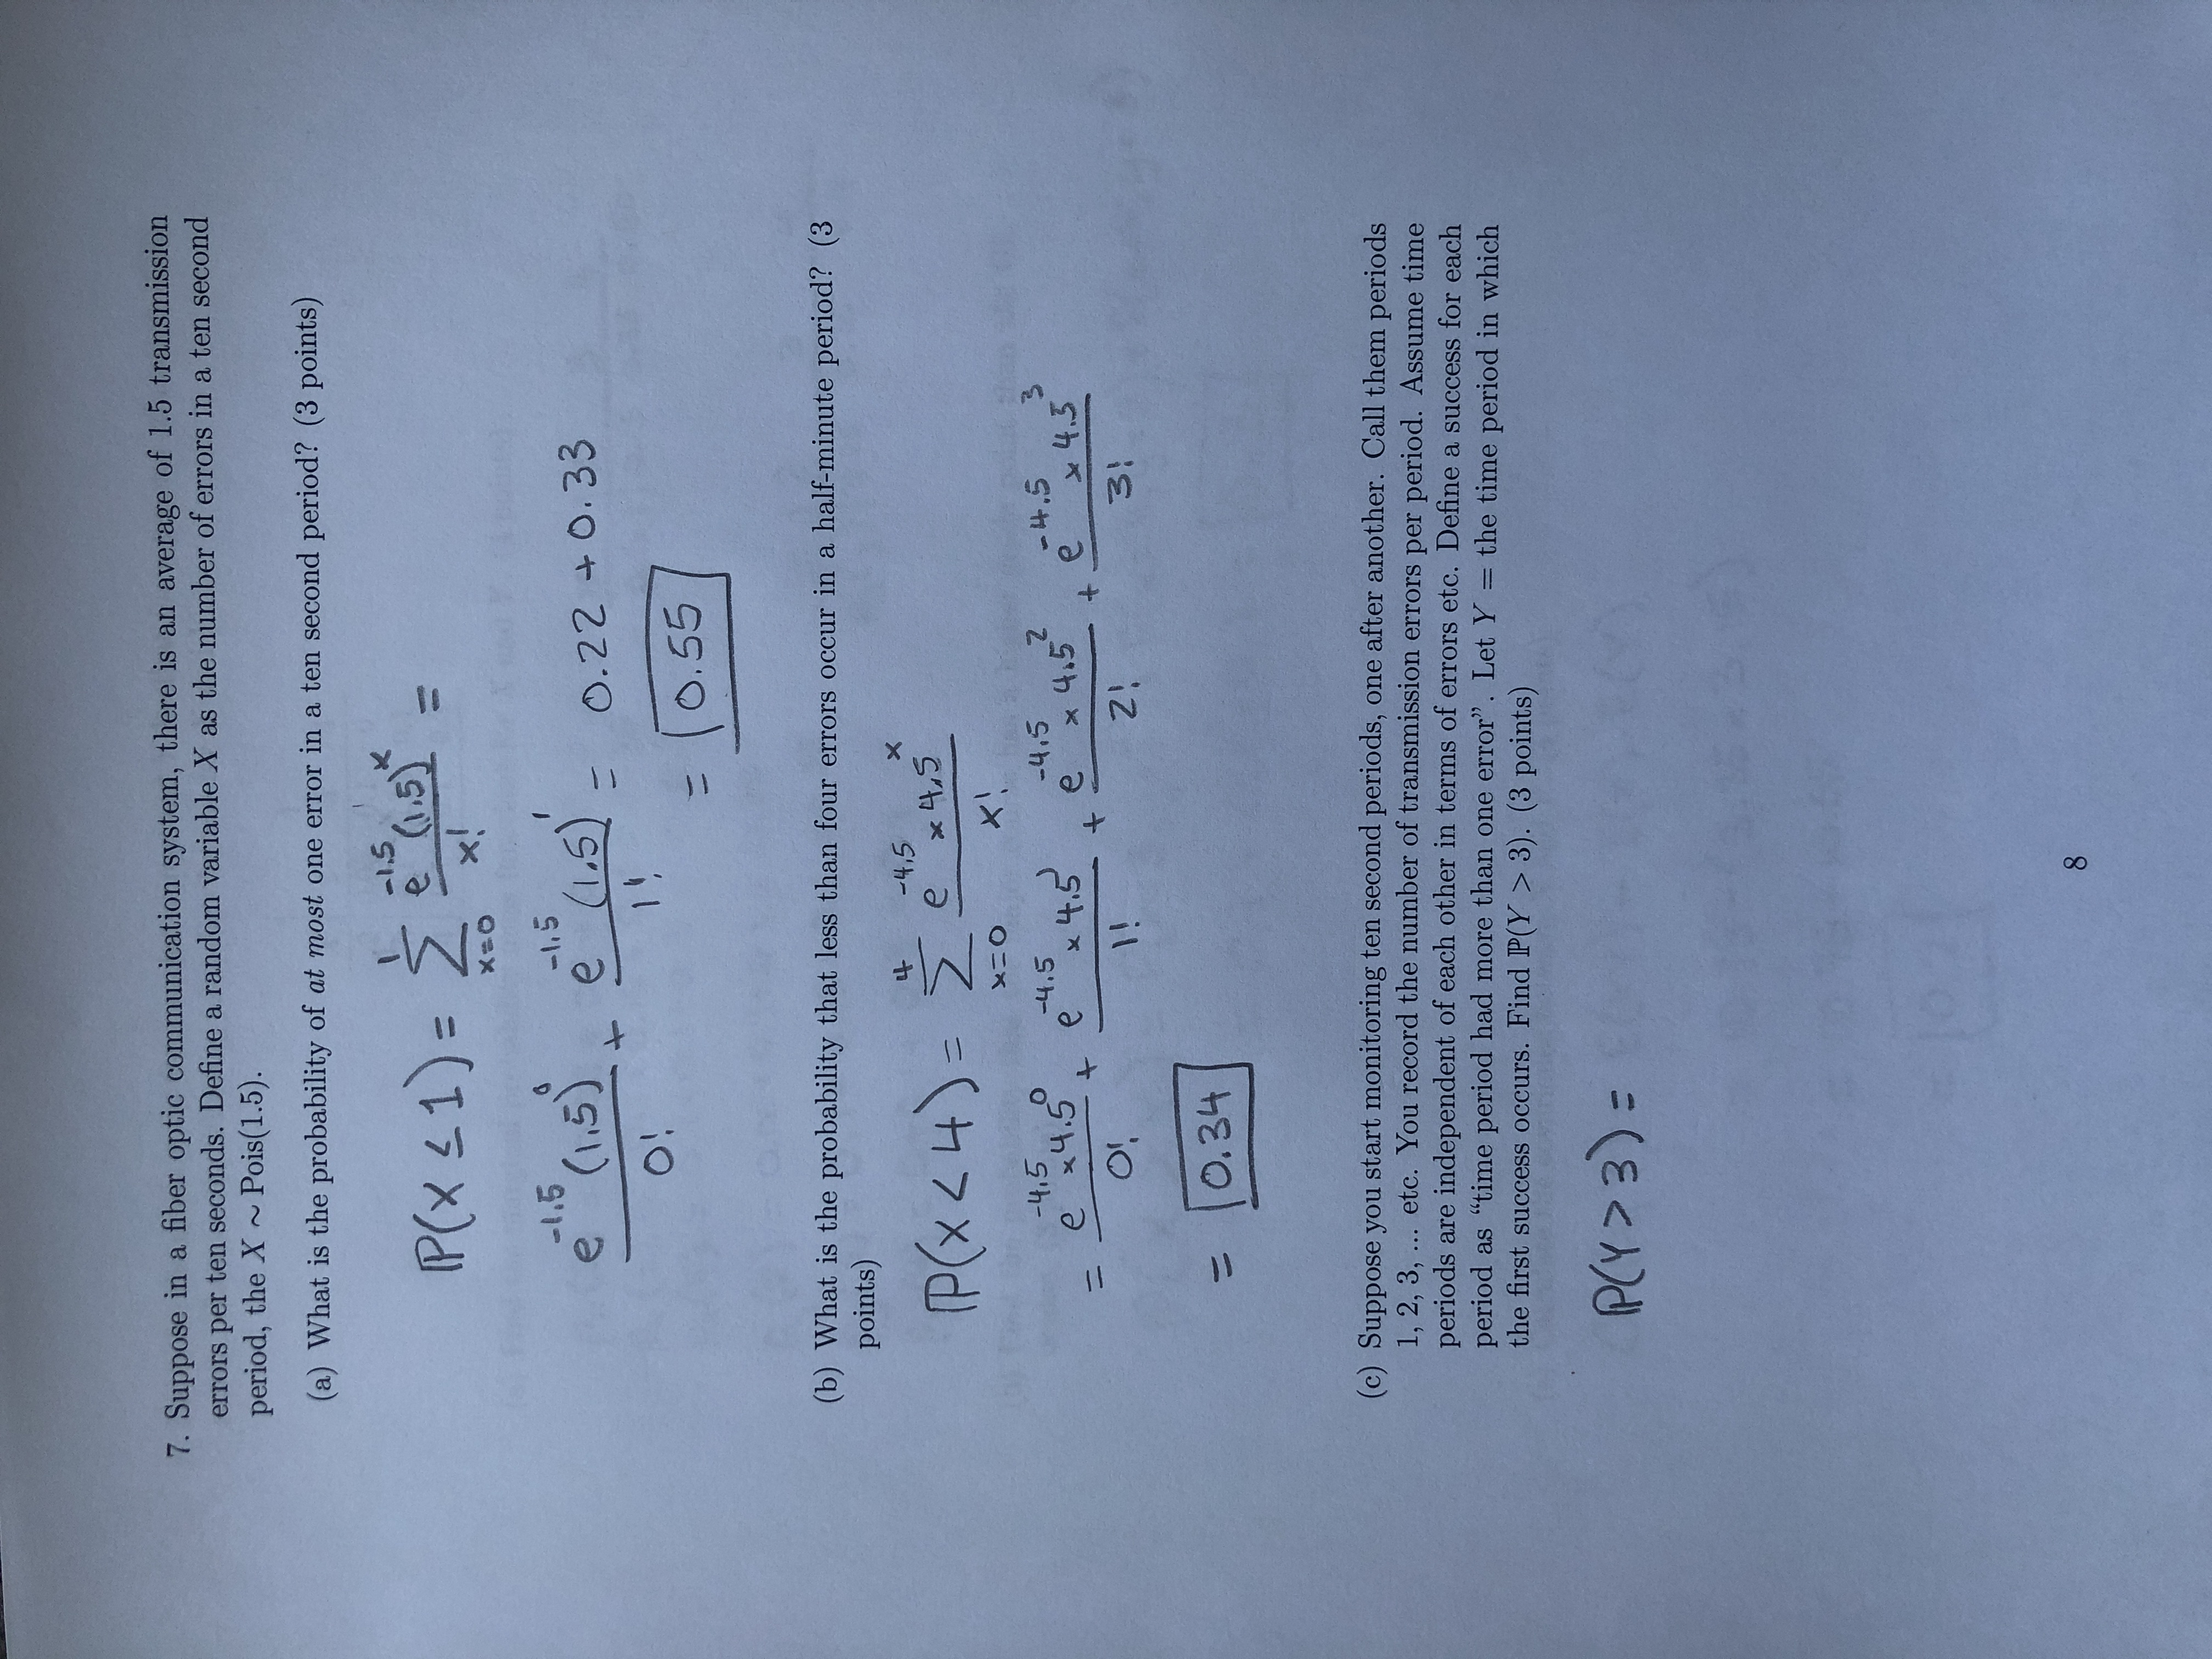 7. Suppose in a fiber optic communication system, there is an average of 1.5 transmission
errors per ten seconds. Define a random variable X as the number of errors in a ten second
period, the X ∼ Pois(1.5).
(a) What is the probability of at most one error in a ten second period? (3 points)
ℙ(X ≤ 1) = ∑_{x=0}^{1} e^{-1.5} (1.5)^x / x! =
e^{-1.5} (1.5)^0 / 0! + e^{-1.5} (1.5)^1 / 1! = 0.22 + 0.33
= 0.55
(b) What is the probability that less than four errors occur in a half-minute period? (3
points)
ℙ(X < 4) = ∑_{x=0}^{4} e^{-4.5} × 4.5^x / x!
= e^{-4.5} × 4.5^0 / 0! + e^{-4.5} × 4.5^1 / 1! + e^{-4.5} × 4.5^2 / 2! + e^{-4.5} × 4.5^3 / 3!
= 0.34
(c) Suppose you start monitoring ten second periods, one after another. Call them periods
1, 2, 3, ... etc. You record the number of transmission errors per period. Assume time
periods are independent of each other in terms of errors etc. Define a success for each
period as “time period had more than one error”. Let Y = the time period in which
the first success occurs. Find ℙ(Y > 3). (3 points)
ℙ(Y > 3) =
8